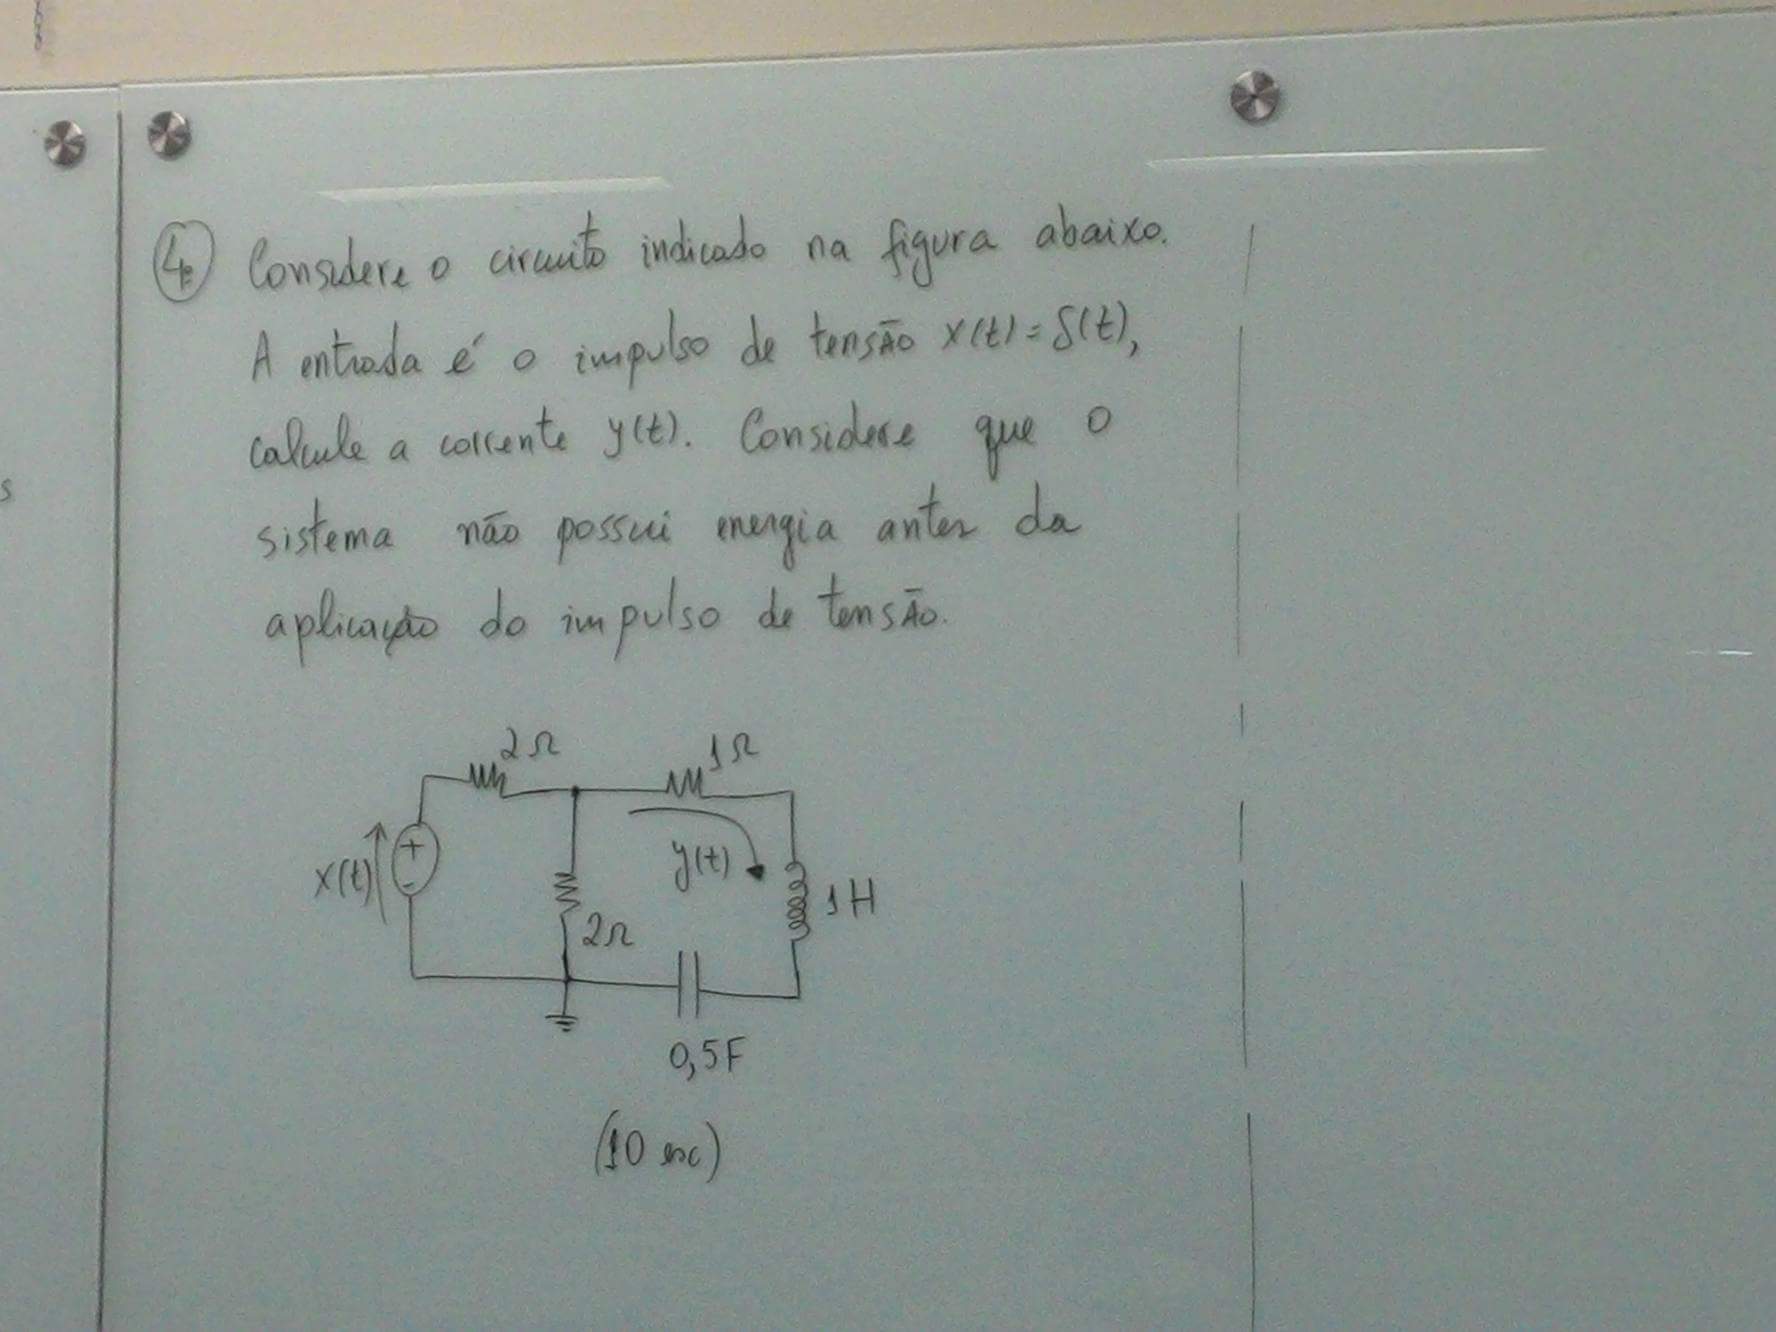 4. Considere o circuito indicado na figura abaixo.
A entrada é o impulso de tensão x(t) = δ(t),
calcule a corrente y(t). Considere que o
sistema não possui energia antes da
aplicação do impulso de tensão.
2Ω
1Ω
x(t)
+
-
y(t)
1H
2Ω
0,5F
(10 esc)
s